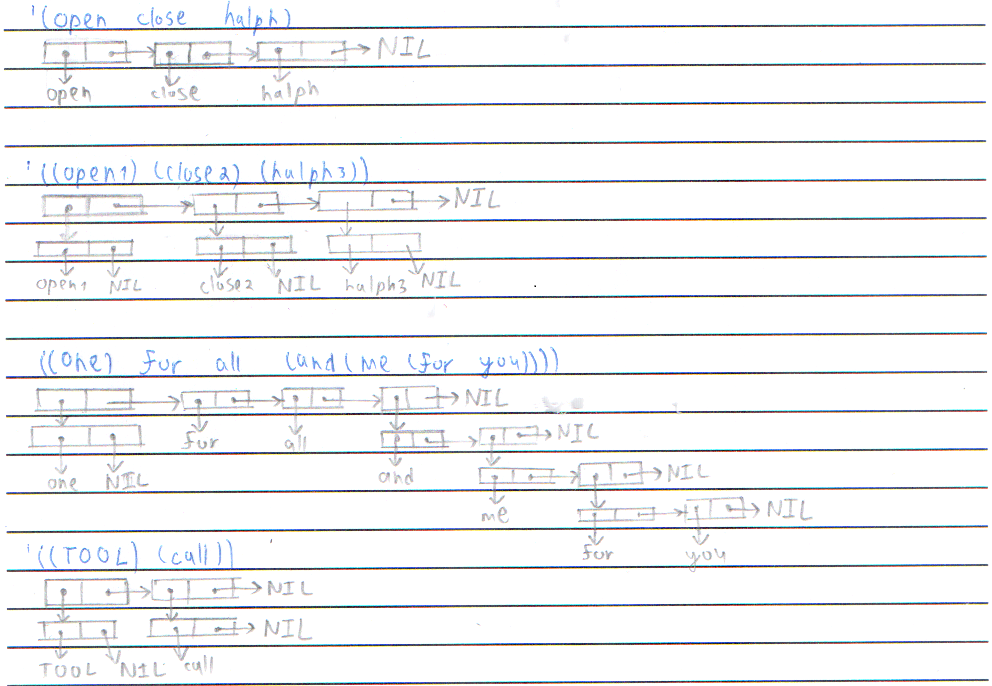 '(open close halph)
NIL
open close halph
'((open1) (close2) (halph3))
NIL
open1 NIL close2 NIL halph3 NIL
'((one) for all (and (me (for you))))
NIL
for all NIL
one NIL and NIL
me NIL
for you
'((TOOL) (call))
NIL
NIL
TOOL NIL call